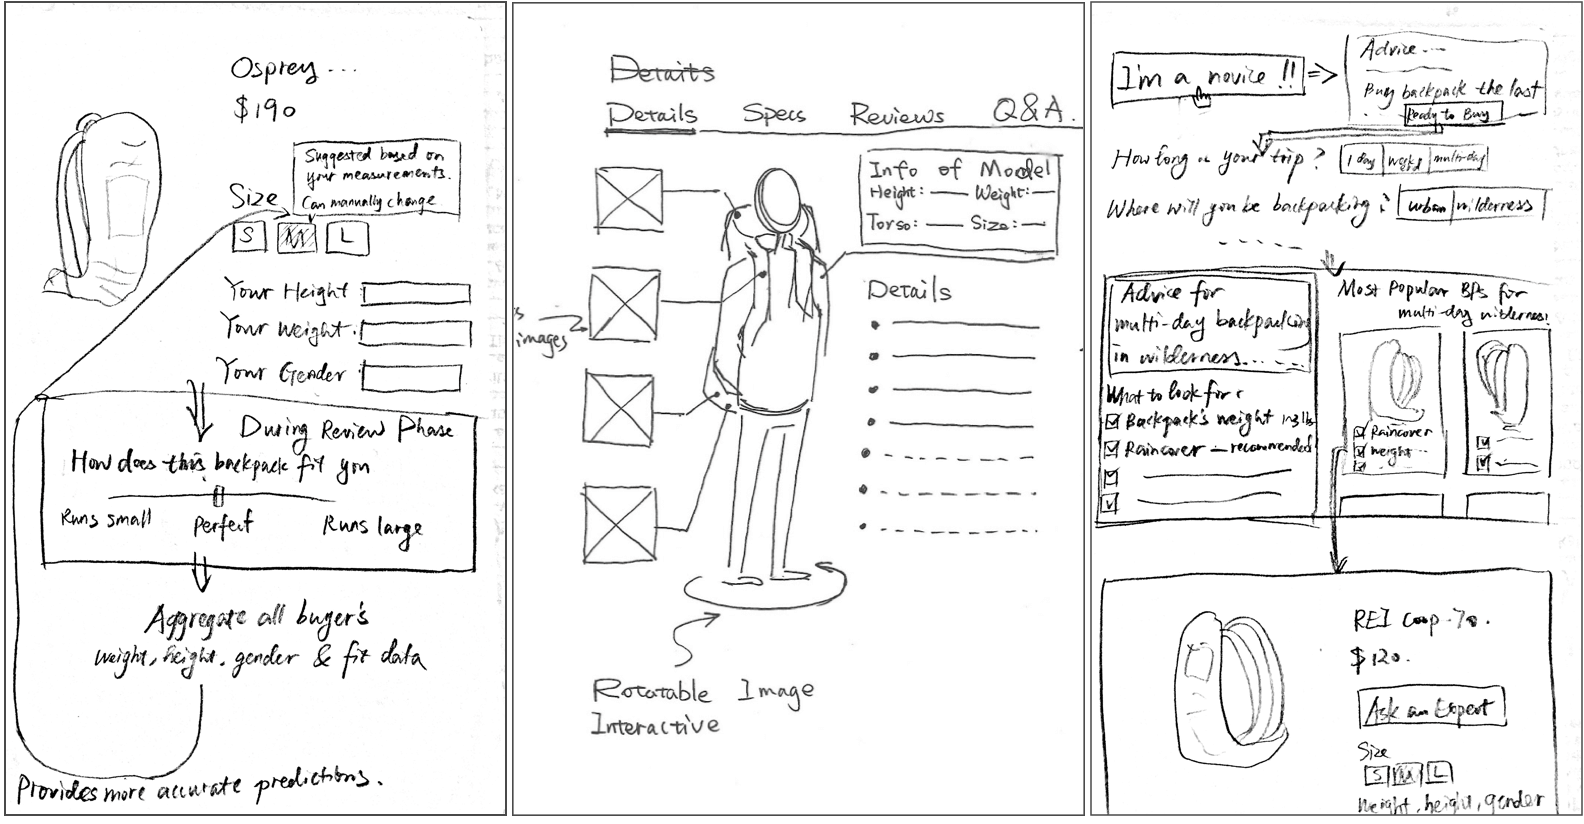 Osprey ...
$190
Suggested based on
your measurements.
Can manually change
Size
S M L
Your Height
Your Weight.
Your Gender
During Review Phase
How does this backpack fit you
Runs small Perfect Runs large
Aggregate all buyer's
weight, height, gender & fit data
Provides more accurate predictions.
Details
Details Specs Reviews Q&A.
Info of Model
Height: Weight:
Torso: Size:
images
Details
Rotatable Image
Interactive
I'm a novice !!
Advice ...
Buy backpack the last
Ready to Buy
How long is your trip ?
1 day multi-day
Where will you be backpacking ?
urban wilderness
Advice for
multi-day backpacking
in wilderness...
What to look for :
Backpack's weight in 3 lbs
Raincover — recommended
Most Popular BPs for
multi-day wilderness!
Raincover
weight
REI Coop 70.
$120.
Ask an Expert
Size
S M L
Weight, height, gender